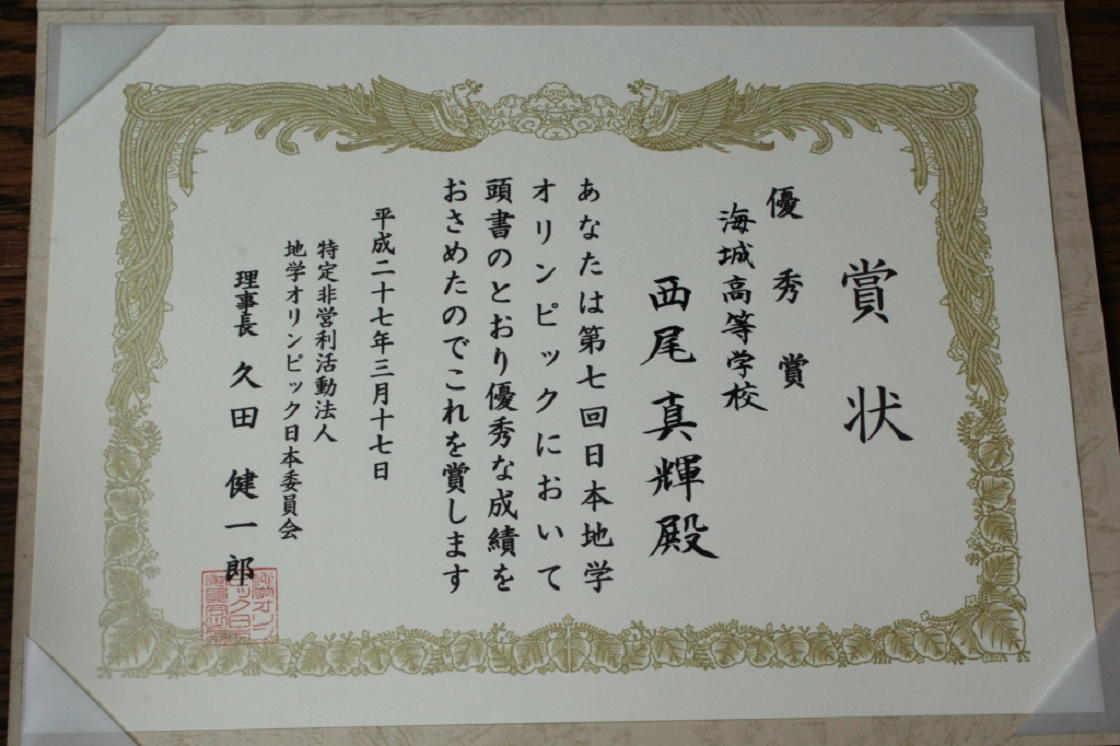 賞状
優秀賞
海城高等学校
西尾真輝殿
あなたは第七回日本地学
オリンピックにおいて
頭書のとおり優秀な成績を
おさめたのでこれを賞します
平成二十七年三月十七日
特定非営利活動法人
地学オリンピック日本委員会
理事長 久田 健一郎